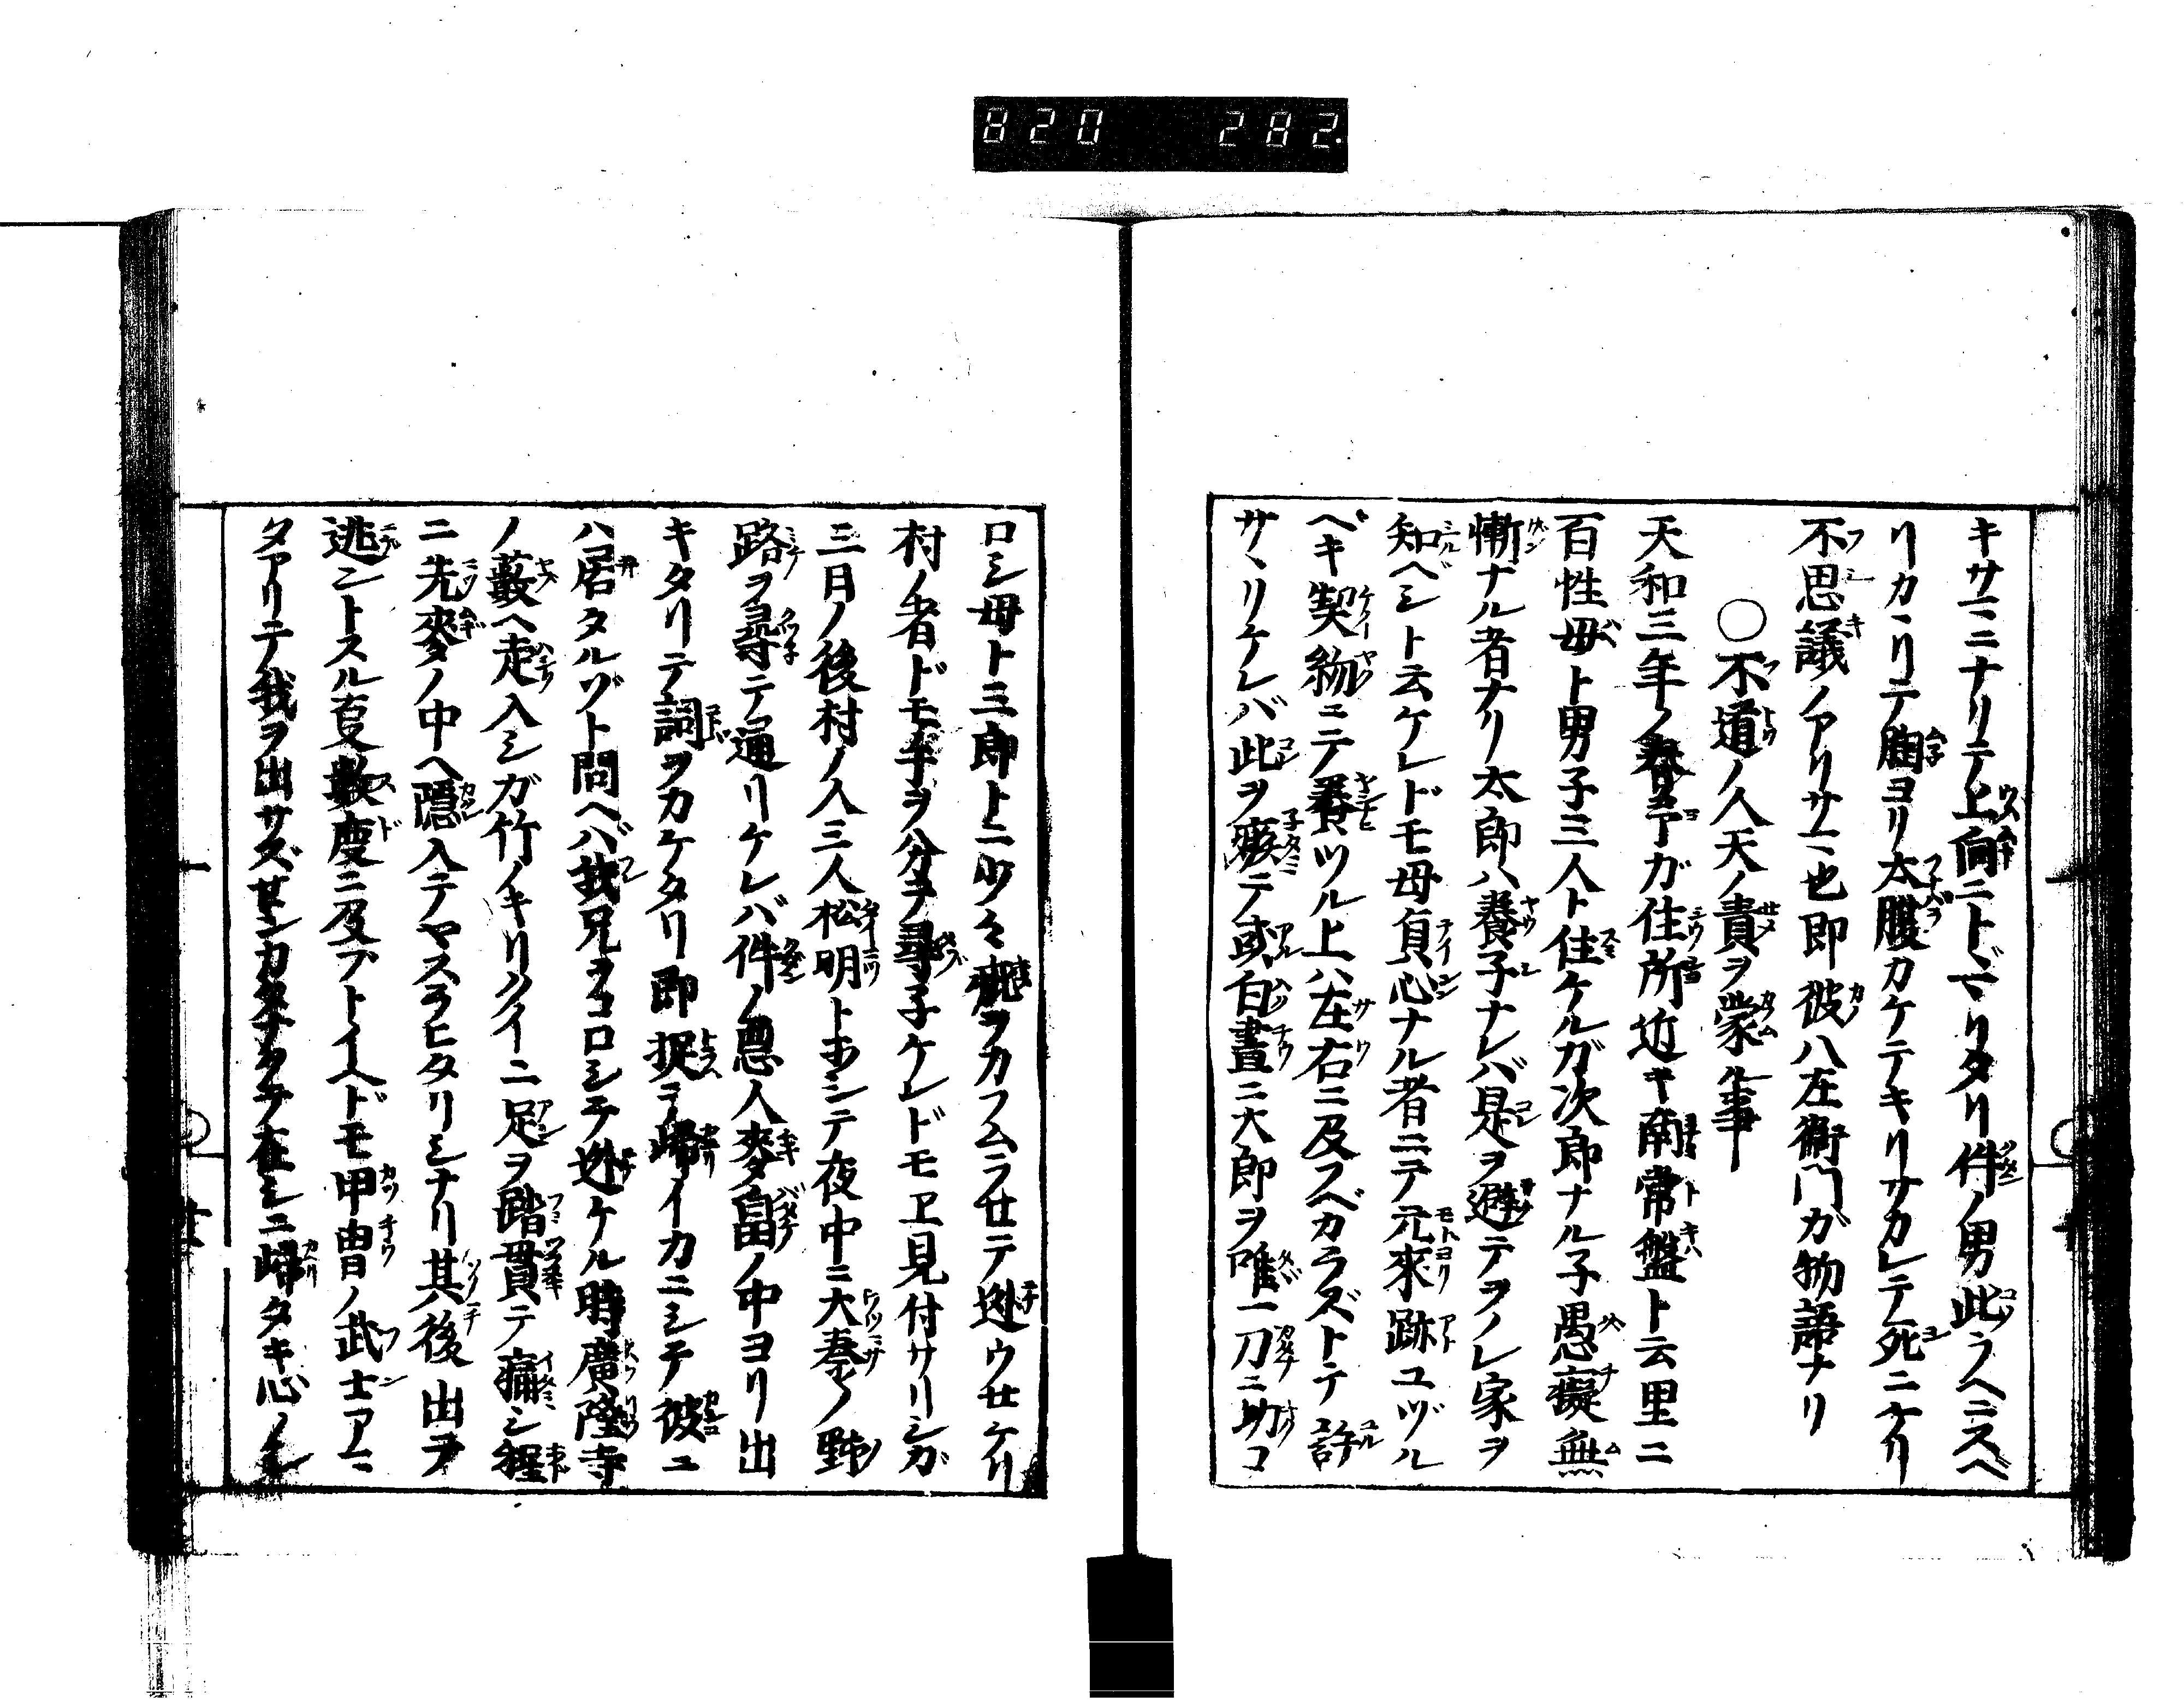 820 282
キサマニナリテ上向ニトヾマリタリ件ノ男此ウヘニスベ
リカヽリテ胸ヨリ太腹カケテキリサカレテ死ニケリ
不思議ノアリサマ也即彼八左衛門ガ物語ナリ
○不道ノ人天ノ責ヲ蒙ル事
天和三年ノ春予ガ住所近キ南常盤ト云里ニ
百性母ト男子三人ト住ケルガ次郎ナル子愚癡無
慚ナル者ナリ太郎ハ養子ナレバ是ヲ避テヲノレ家ヲ
知ベシト云ケレドモ母貞心ナル者ニテ元來跡ユヅル
ベキ契約ニテ養ツル上ハ左右ニ及フベカラズトテ許
サヽリケレバ此ヲ嫉テ或白晝ニ太郎ヲ唯一刀ニ切コ
ロシ母ト三郎トニ少々疵ヲカフムラせテ迯ウせケリ
村ノ者ドモ手ヲ分テ尋子ケレドモヱ見付サリシガ
三日ノ後村ノ人三人松明トホシテ夜中ニ大秦ノ野
路ヲ尋テ通リケレバ件ノ悪人麥畠ノ中ヨリ出
キタリテ詞ヲカケタリ即捉テ歸イカニシテ彼ニ
ハ居タルゾト問ヘバ我兄ヲコロシテ迯ケル時廣隆寺
ノ藪ヘ走入シガ竹ノキリクイニ足ヲ踏貫テ痛シ程
ニ先麥ノ中ヘ隠入テヤスラヒタリシナリ其後出ヲ
逃ントスル亊數度ニ及フトイヘドモ甲冑ノ武士アマ
タアリテ我ヲ出サズせンカタナクテ在シニ歸タキ心ノミ